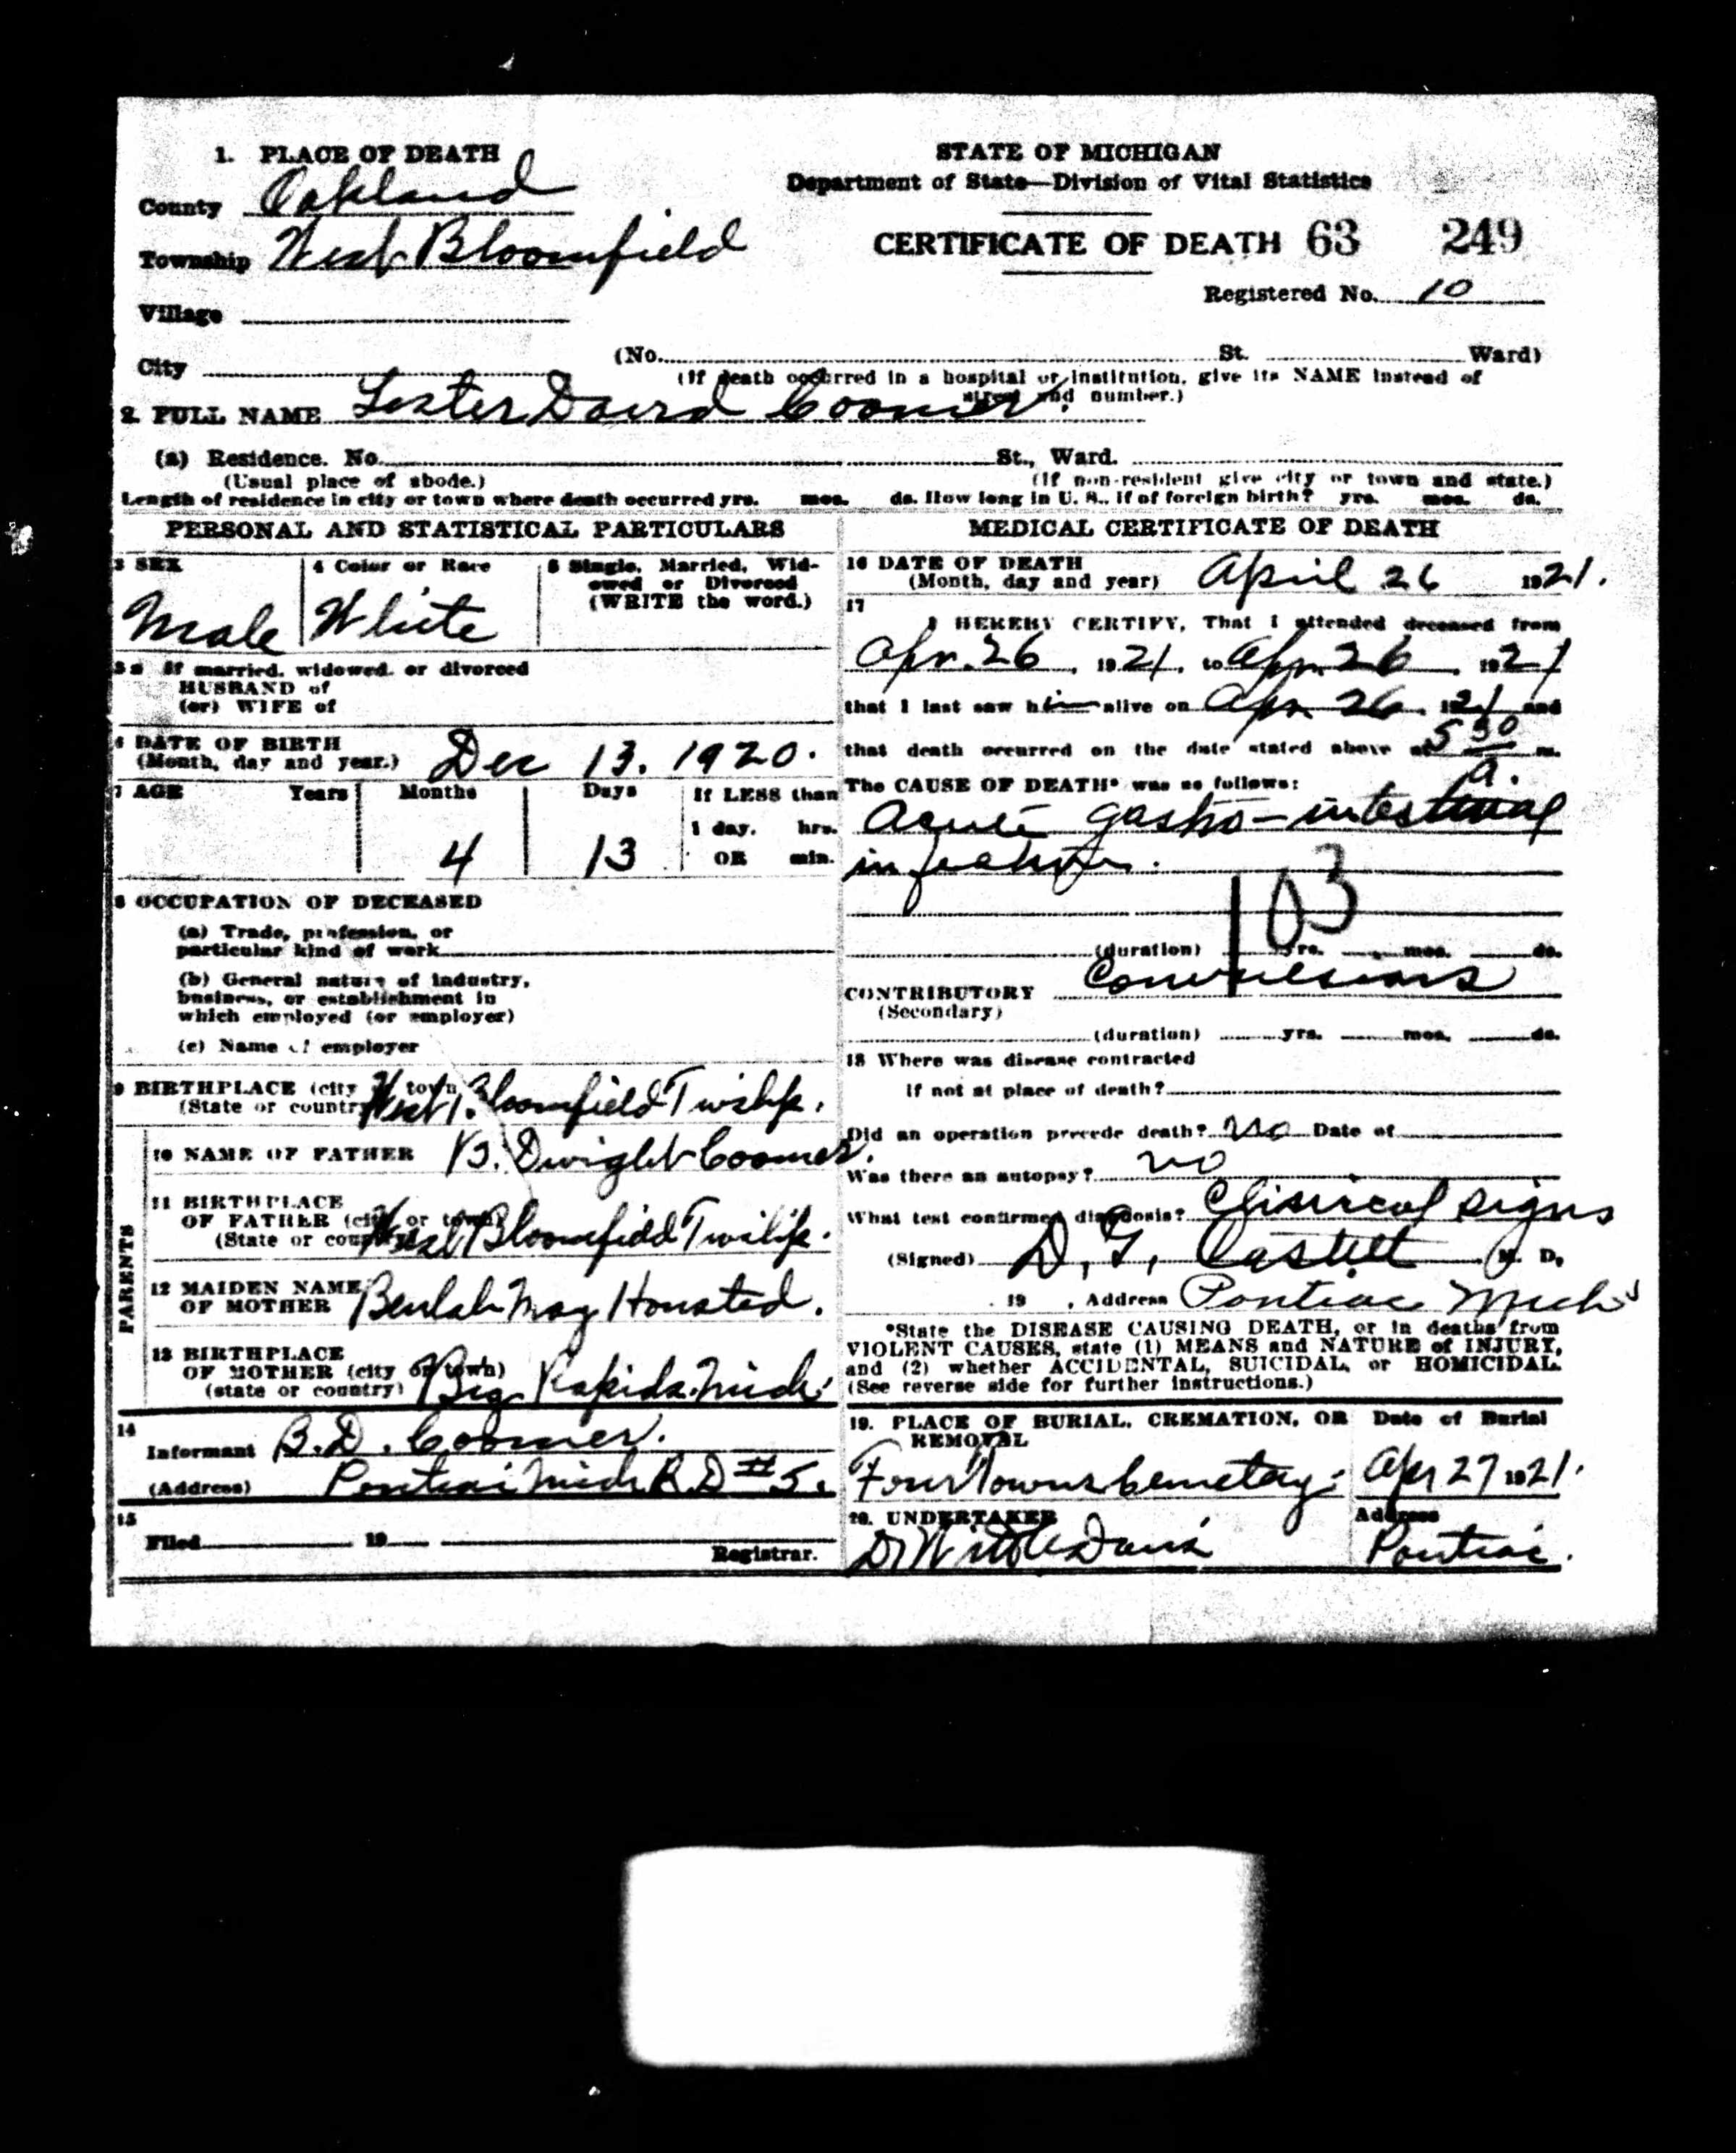 1. PLACE OF DEATH
County Oakland
Township West Bloomfield
Village
City
STATE OF MICHIGAN
Department of State—Division of Vital Statistics
CERTIFICATE OF DEATH 63 249
Registered No. 10
(No. St. Ward)
(If death occurred in a hospital or institution, give its NAME instead of
street and number.)
2. FULL NAME Lester David Coomer.
(a) Residence. No. St., Ward.
(Usual place of abode.) (If non-resident give city or town and state.)
Length of residence in city or town where death occurred yrs. mos. ds. How long in U. S., if of foreign birth? yrs. mos. ds.
PERSONAL AND STATISTICAL PARTICULARS
3 SEX
Male
4 Color or Race
White
5 Single, Married, Wid-
owed or Divorced
(WRITE the word.)
5a If married, widowed, or divorced
HUSBAND of
(or) WIFE of
6 DATE OF BIRTH
(Month, day and year.) Dec 13. 1920.
7 AGE Years Months Days If LESS than
1 day, hrs.
4 13 OR min.
8 OCCUPATION OF DECEASED
(a) Trade, profession, or
particular kind of work
(b) General nature of industry,
business, or establishment in
which employed (or employer)
(c) Name of employer
9 BIRTHPLACE (city or town)
(State or country) West Bloomfield Twshp.
PARENTS
10 NAME OF FATHER B. Dwight Coomer.
11 BIRTHPLACE
OF FATHER (city or town)
(State or country) West Bloomfield Twshp.
12 MAIDEN NAME
OF MOTHER Beulah May Housted.
13 BIRTHPLACE
OF MOTHER (city or town)
(state or country) Big Rapids. Mich.
14
Informant B. D. Coomer.
(Address) Pontiac Mich R. D #5.
15
Filed 19
Registrar.
MEDICAL CERTIFICATE OF DEATH
16 DATE OF DEATH
(Month, day and year) April 26 1921.
17
I HEREBY CERTIFY, That I attended deceased from
Apr. 26, 1921, to Apr. 26, 1921
that I last saw him alive on Apr. 26, 1921 and
that death occurred on the date stated above at 5 30 m.
a.
The CAUSE OF DEATH* was as follows:
Acute gastro-intestinal
infection.
103
(duration) yrs. mos. ds.
CONTRIBUTORY Convulsions
(Secondary)
(duration) yrs. mos. ds.
18 Where was disease contracted
if not at place of death?
Did an operation precede death? no Date of
Was there an autopsy? no
What test confirmed diagnosis? Clinical signs
(Signed) D. G. Castell M. D.
19 , Address Pontiac Mich
*State the DISEASE CAUSING DEATH, or in deaths from
VIOLENT CAUSES, state (1) MEANS and NATURE of INJURY,
and (2) whether ACCIDENTAL, SUICIDAL, or HOMICIDAL.
(See reverse side for further instructions.)
19. PLACE OF BURIAL, CREMATION, OR
REMOVAL
Four Towns Cemetery.
Date of Burial
Apr 27 1921.
20. UNDERTAKER
Davis
Address
Pontiac.